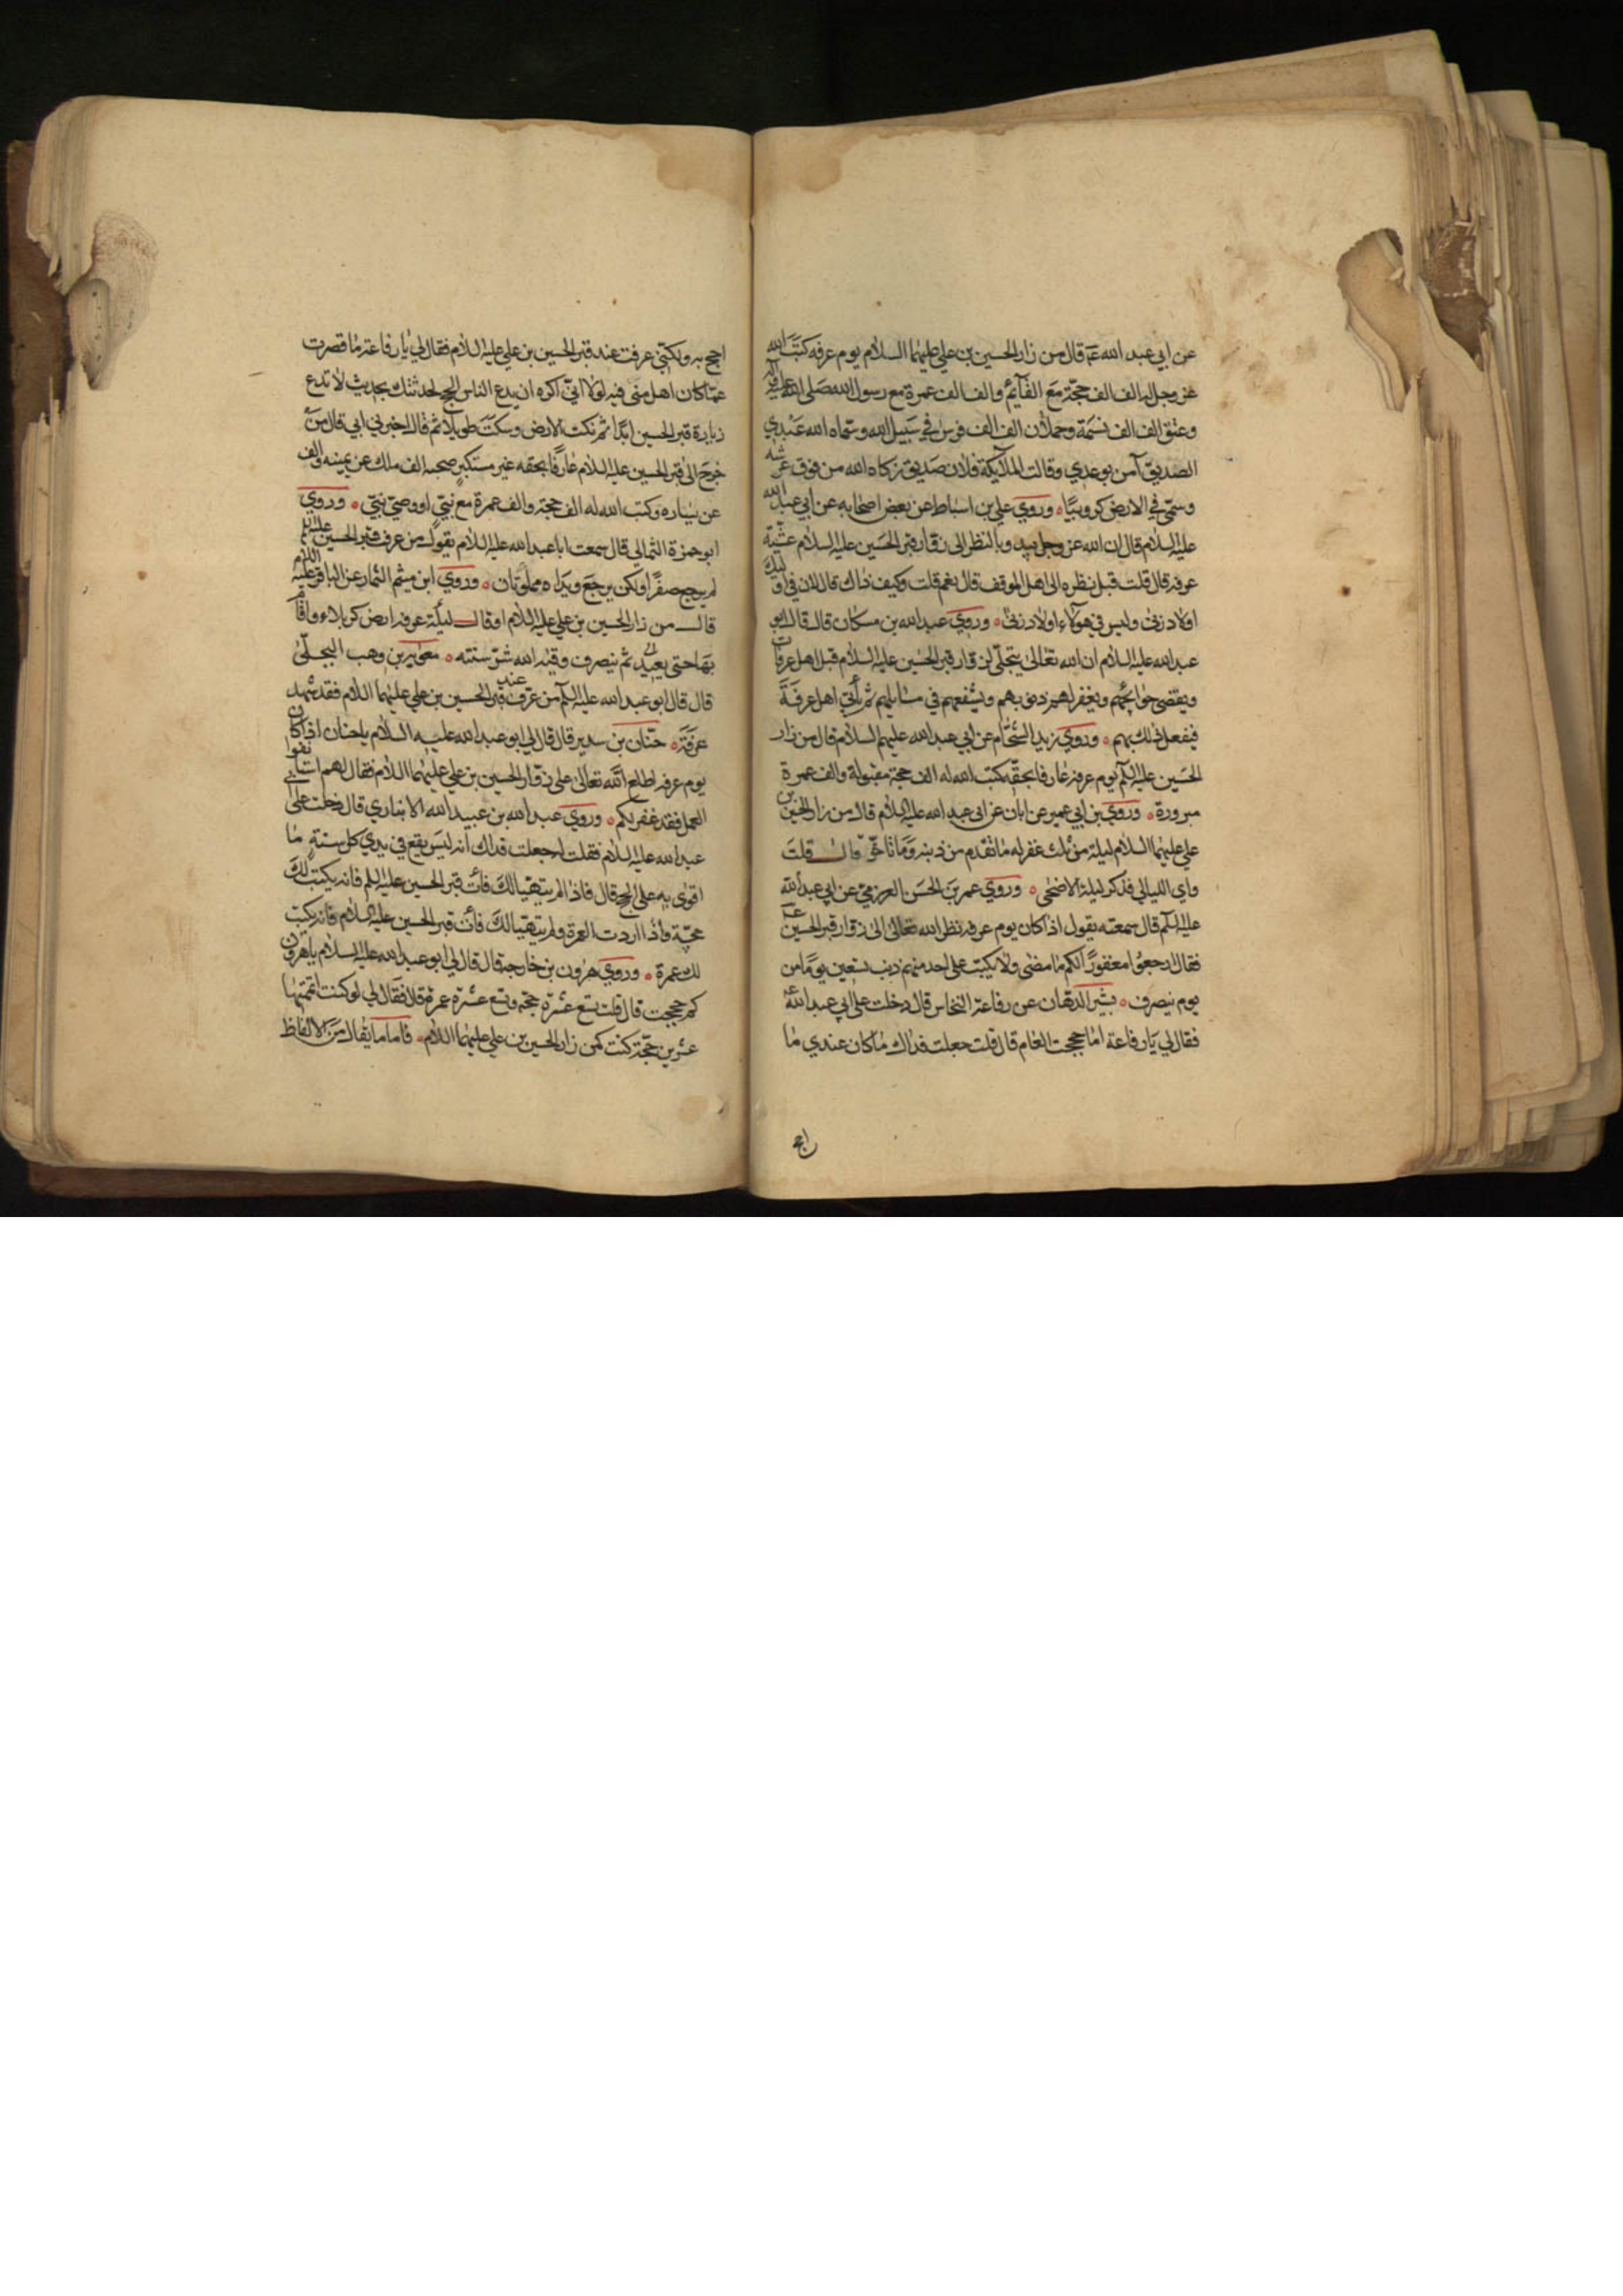 عن ابي عبد الله عم قال من زار الحسين بن علي عليهما السلام يوم عرفه كتب الله
عز وجل له الف الف حجّة مع القآئم والف الف عمرة مع رسول الله صلى الله عليه وآله
وعتق الف الف نسَمة وحملان الف الف فرس في سبيل الله وسمّاه الله عبدي
الصديق آمن بوعدي وقالت الملائكة فلان صديق زكاه الله من فوق عرشه
وسمّي في الارض كروبيّا وروي علي بن اسباط عن بعض اصحابه عن ابي عبد الله
عليه السلام قال ان الله عز وجل يبدو بالنظر الى زوّار قبر الحسين عليه السلام عشيّة
عرفه قال قلت قبل نظره الى اهل الموقف قال نعم قلت وكيف ذاك قال لان في اوليك
اولاد زنى وليس في هولاء اولاد زنى وروي عبد الله بن مسكان قال قال ابو
عبد الله عليه السلام ان الله تعالى يتجلّى لزوّار قبر الحسين عليه السلام قبل اهل عرفات
ويقضي حوائجهم ويغفر لهم ذنوبهم ويشفعهم في مسايلهم ثم يأتي اهل عرفة
فيفعل ذلك بهم وروي زيد الشحّام عن ابي عبد الله عليه السلام قال من زار
الحسين عليه السلم يوم عرفه عارفا بحقّه كتب الله له الف حجة مقبولة والف عمرة
مبرورة وروي بن ابي عمير عن ابان عن ابي عبد الله عليه السلام قال من زار الحسين بن
علي عليهما السلام ليلة من ثلث غفر له ما تقدم من ذنبه وما تاخّر قال قلت
واي الليالي فذكر ليلة الاضحى وروي عمر بن الحسن العرزمي عن ابي عبد الله
عليه السلم قال سمعته يقول اذا كان يوم عرفه نظر الله تعالى الى زوّار قبر الحسين عم
فقال ارجعوا مغفورًا لكم ما مضى ولا يكتب على احد منهم ذنب سبعين يوما من
يوم ينصرف بشير الدهّان عن رفاعة النخاس قال دخلت على ابي عبد الله عم
فقال لي يا رفاعة اما حججت العام قال قلت جعلت فداك ما كان عندي ما
اج
احج به ولكنّي عرفت عند قبر الحسين بن علي عليه السلام فقال لي يا رفاعة ما قصرت
عمّا كان اهل منى فيه لولا انّي اكره ان يدع الناس الحج لحدثتك بحديث لا تدع
زيارة قبر الحسين ابدًا ثم نكت الارض وسكت طويلا ثم قال اخبرني ابي قال من
خرج الى قبر الحسين عليه السلام عارفًا بحقه غير مستكبر صحبه الف ملك عن يمينه والف
عن يساره وكتب الله له الف حجة والف عمرة مع نبيّ او وصيّ نبيّ وروي
ابو حمزة الثمالي قال سمعت ابا عبد الله عليه السلام يقول من عرف عند قبر الحسين عليه السلم
لم يرجع صفرًا ولكن يرجع ويداه مملوّتان وروي ابن ميثم التمار عن الباقر عليه السلام
قال من زار الحسين بن علي عليه السلام او قال ليلة عرفه ارض كربلاء واقام
بها حتى يعيّد ثم ينصرف وقيه الله شرّ سنته معوية بن وهب البجلّي
قال قال ابو عبد الله عليه السلم من عرّف عند قبر الحسين بن علي عليهما السلام فقد شهد
عرفة حنّان بن سدير قال قال لي ابو عبد الله عليه السلام يا حنان اذا كان
يوم عرفه اطلع الله تعالى على زوّار الحسين بن علي عليهما السلام فقال لهم استانفوا
العمل فقد غفر لكم وروي عبد الله بن عبيد الله الانباري قال دخلت على ابي
عبد الله عليه السلام فقلت له جعلت فداك انه ليس يقع في يدي كل سنة ما
اقوى به على الحج قال فاذا لم يتهيّا لك فأت قبر الحسين عليه السلم فانه يكتب لك
حجّة واذا اردت العمرة ولم يتهيّا لك فأت قبر الحسين عليه السلام فانه يكتب
لك عمرة وروي هرون بن خارجه قال قال لي ابو عبد الله عليه السلام يا هرون
كم حججت قال قلت تسع عشرة حجّه وتسع عشرة عمرة قال فقال لي لو كنت اتممتها
عشرين حجّة كنت كمن زار الحسين بن علي عليهما السلام فاما ما يقال من الالفاظ